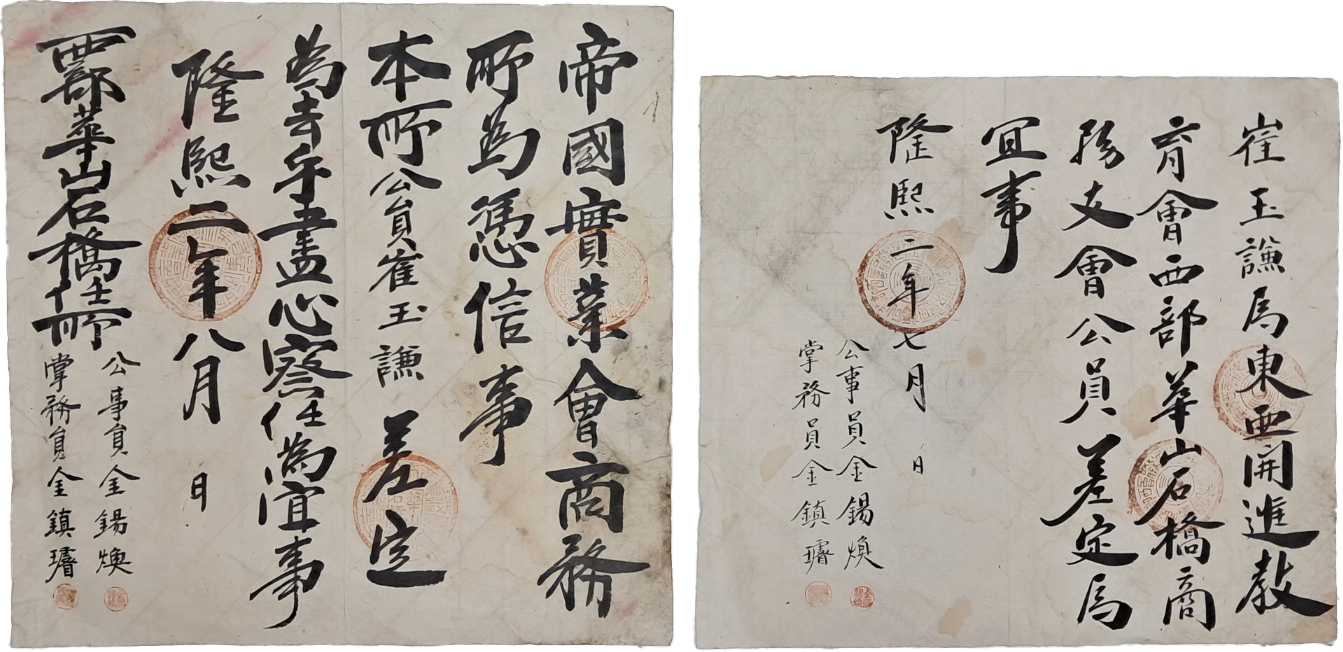 帝國實業會商務
所為憑信事
本所公員崔玉謙差定
為去乎盡心察任為宜事
隆熙二年八月 日
西部華山石橋任所
公事員金錫煥
掌務員金鎮璿
崔玉謙爲東亜開進教
育會西部華山石橋商
務支會公員差定爲
宜事
隆熙二年七月 日
公事員金錫煥
掌務員金鎮璿